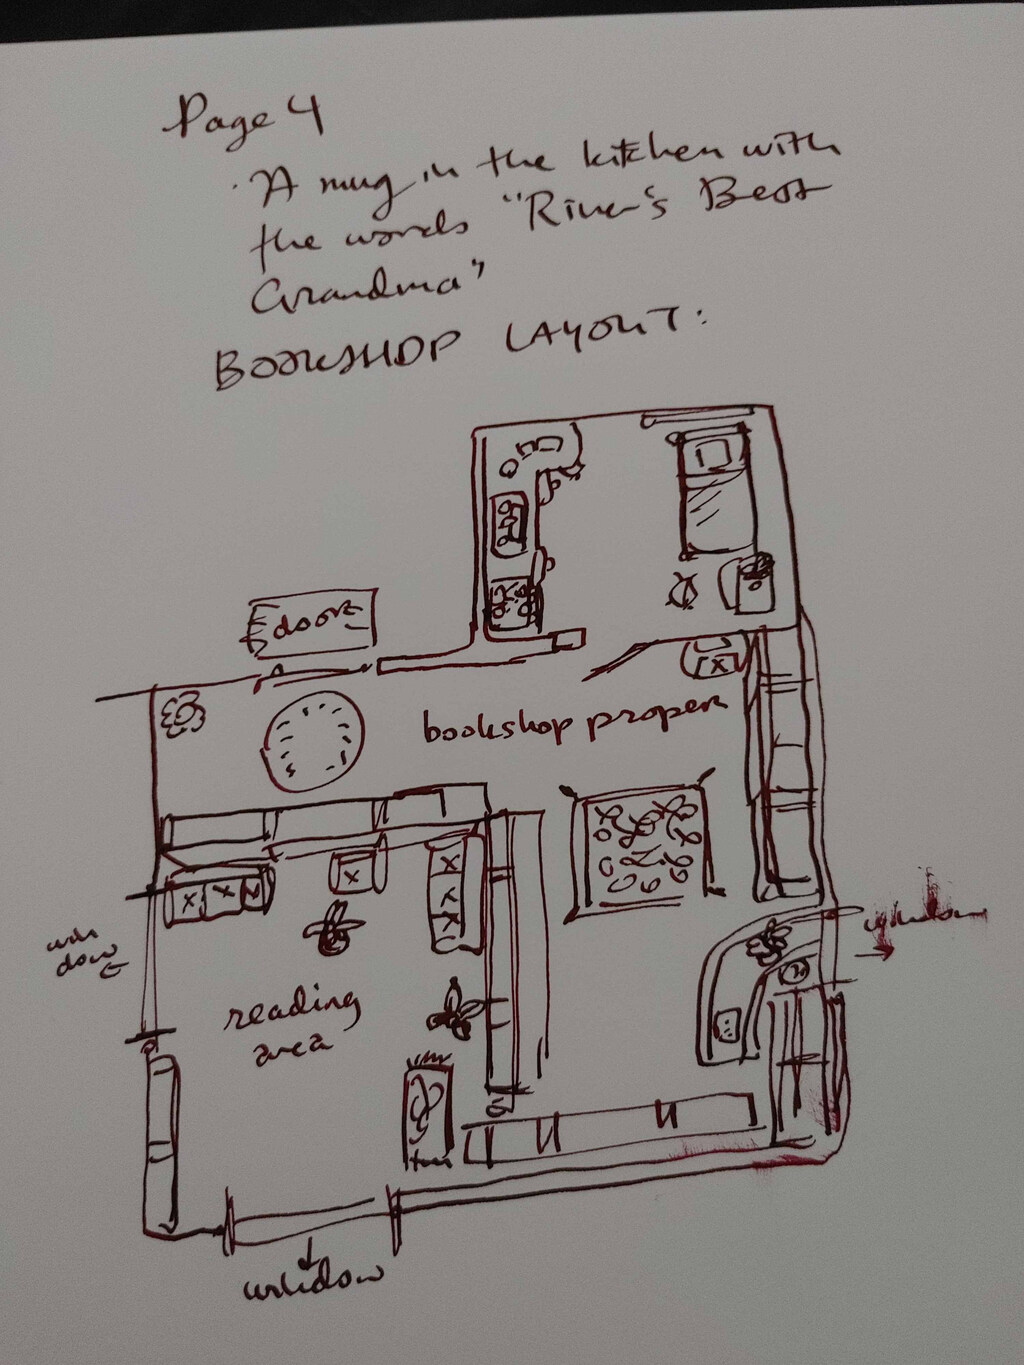 Page 4
· A mug in the kitchen with
the words "River's Best
Grandma"
BOOKSHOP LAYOUT:
door
bookshop proper
window
window
reading
area
window